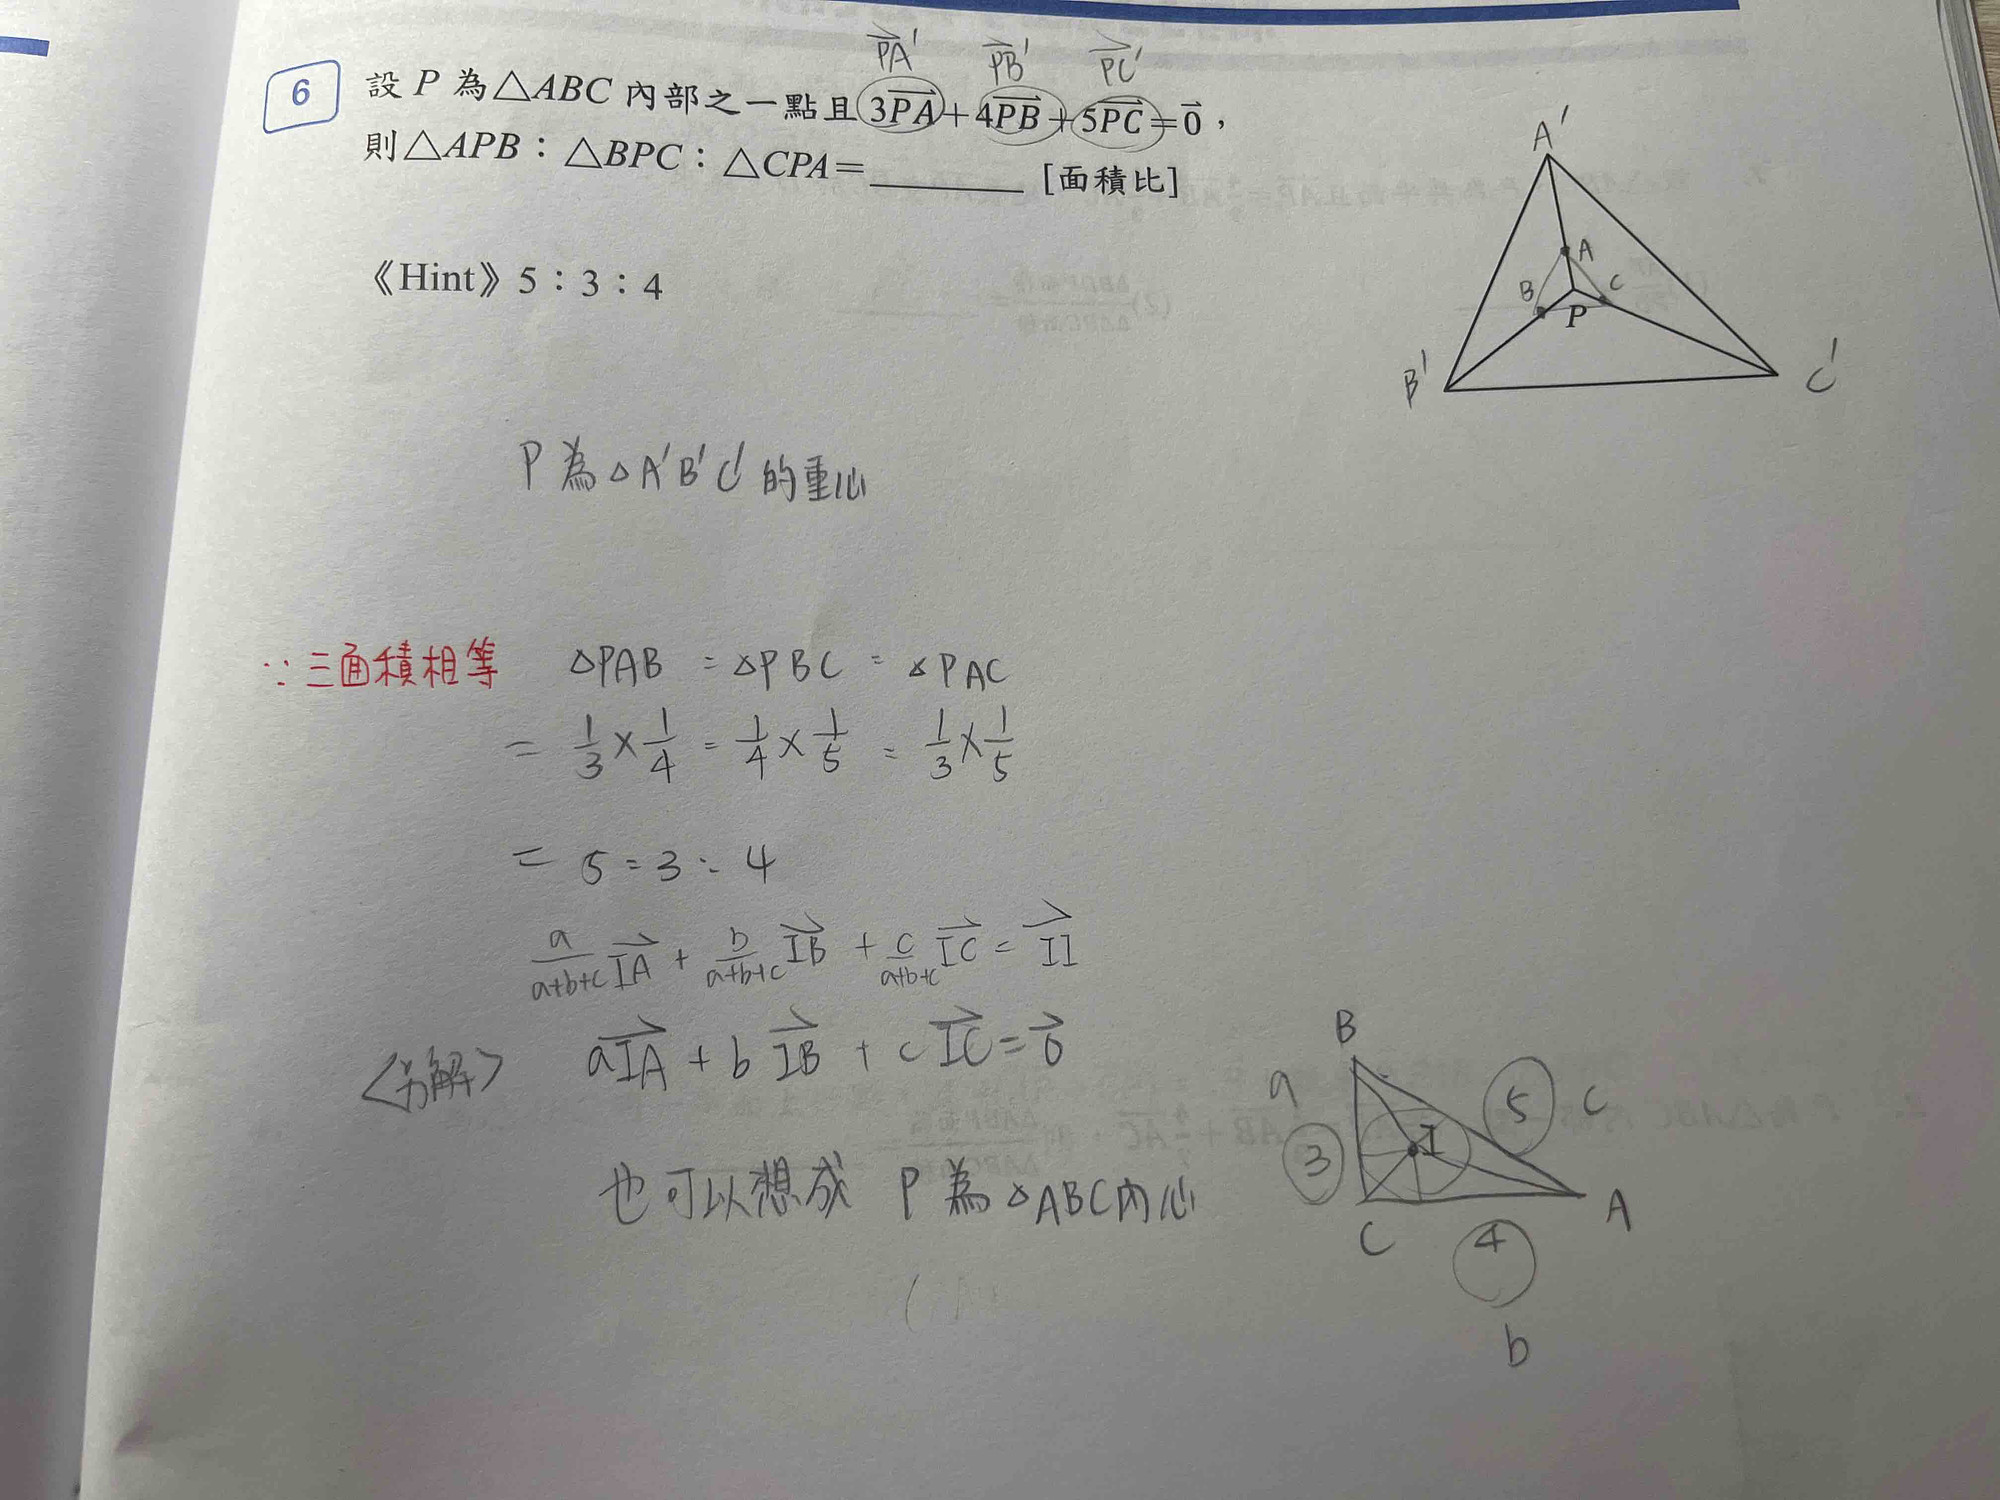 PA' PB' PC'
6 設 P 為△ABC 內部之一點且 3PA+4PB+5PC=0，
則△APB：△BPC：△CPA=________ [面積比]
《Hint》5：3：4
A'
A
B C
P
B' C'
P 為 △A'B'C' 的重心
∵三面積相等 △PAB : △PBC : △PAC
= 1/3 × 1/4 : 1/4 × 1/5 : 1/3 × 1/5
= 5 : 3 : 4
a/a+b+c IA + b/a+b+c IB + c/a+b+c IC = II
<另解> aIA + bIB + cIC = 0
也可以想成 P 為 △ABC內心
B
a 5 c
3 I
C A
4
b